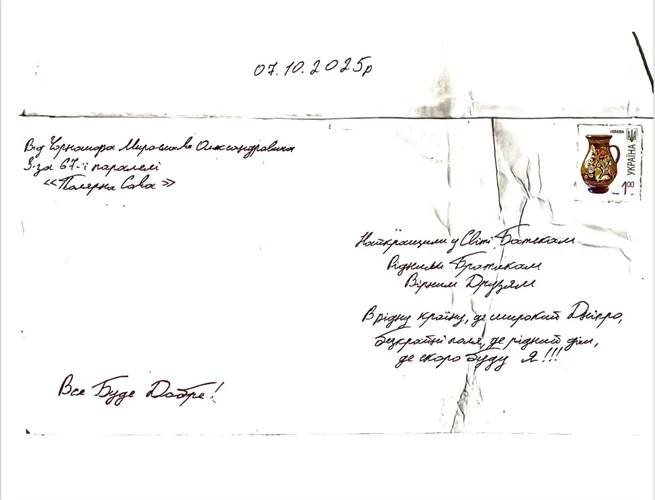 07.10.2025р
Від Чорномора Мирослава Олександровича
З-за 67-ї паралелі
«Полярна Сова»
УКРАЇНА
UKRAINA
1.00
Найкращим у Світі Батькам
Рідним Братикам
Вірним Друзям
В рідну країну, де широкий Дніпро,
безкрайні поля, де рідний дім,
де скоро буду Я!!!
Все Буде Добре!